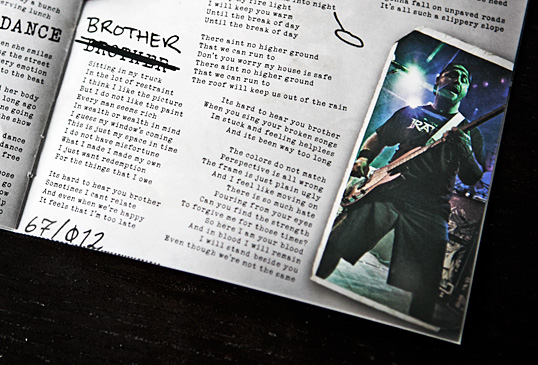 a bunch
serving lunch
DANCE
en she smiles
ng the street
very emotion
to the beat
her body
long ago
the show
dance
dance
free
pose
go
low
BROTHER
BROTHER
Sitting in my truck
In the lot of restraint
I think I like the picture
But I do not like the paint
Every man seems rich
In wealth or wealth in mind
I guess my window's coming
This is just my space in time
I do not have misfortune
What I made I made my own
I just want redemption
For the things that I owe
Its hard to hear you brother
Sometimes I cant relate
And even when we're happy
It feels that I'm too late
67/012
into night
my fire light
I will keep you warm
Until the break of day
Until the break of day
There aint no higher ground
That we can run to
Don't you worry my house is safe
There aint no higher ground
That we can run to
The roof will keep us out of the rain
Its hard to hear you brother
When you sing your broken songs
Im stuck and feeling helpless
And its been way too long
The colors do not match
Perspective is all wrong
The frame is just plain ugly
And I feel like moving on
There is so much hate
Pouring from your eyes
Can you find the strength
To forgive me for those times?
So here I am your blood
And in blood I will remain
I will stand beside you
Even though we're not the same
need
fall on unpaved roads
It's all such a slippery slope